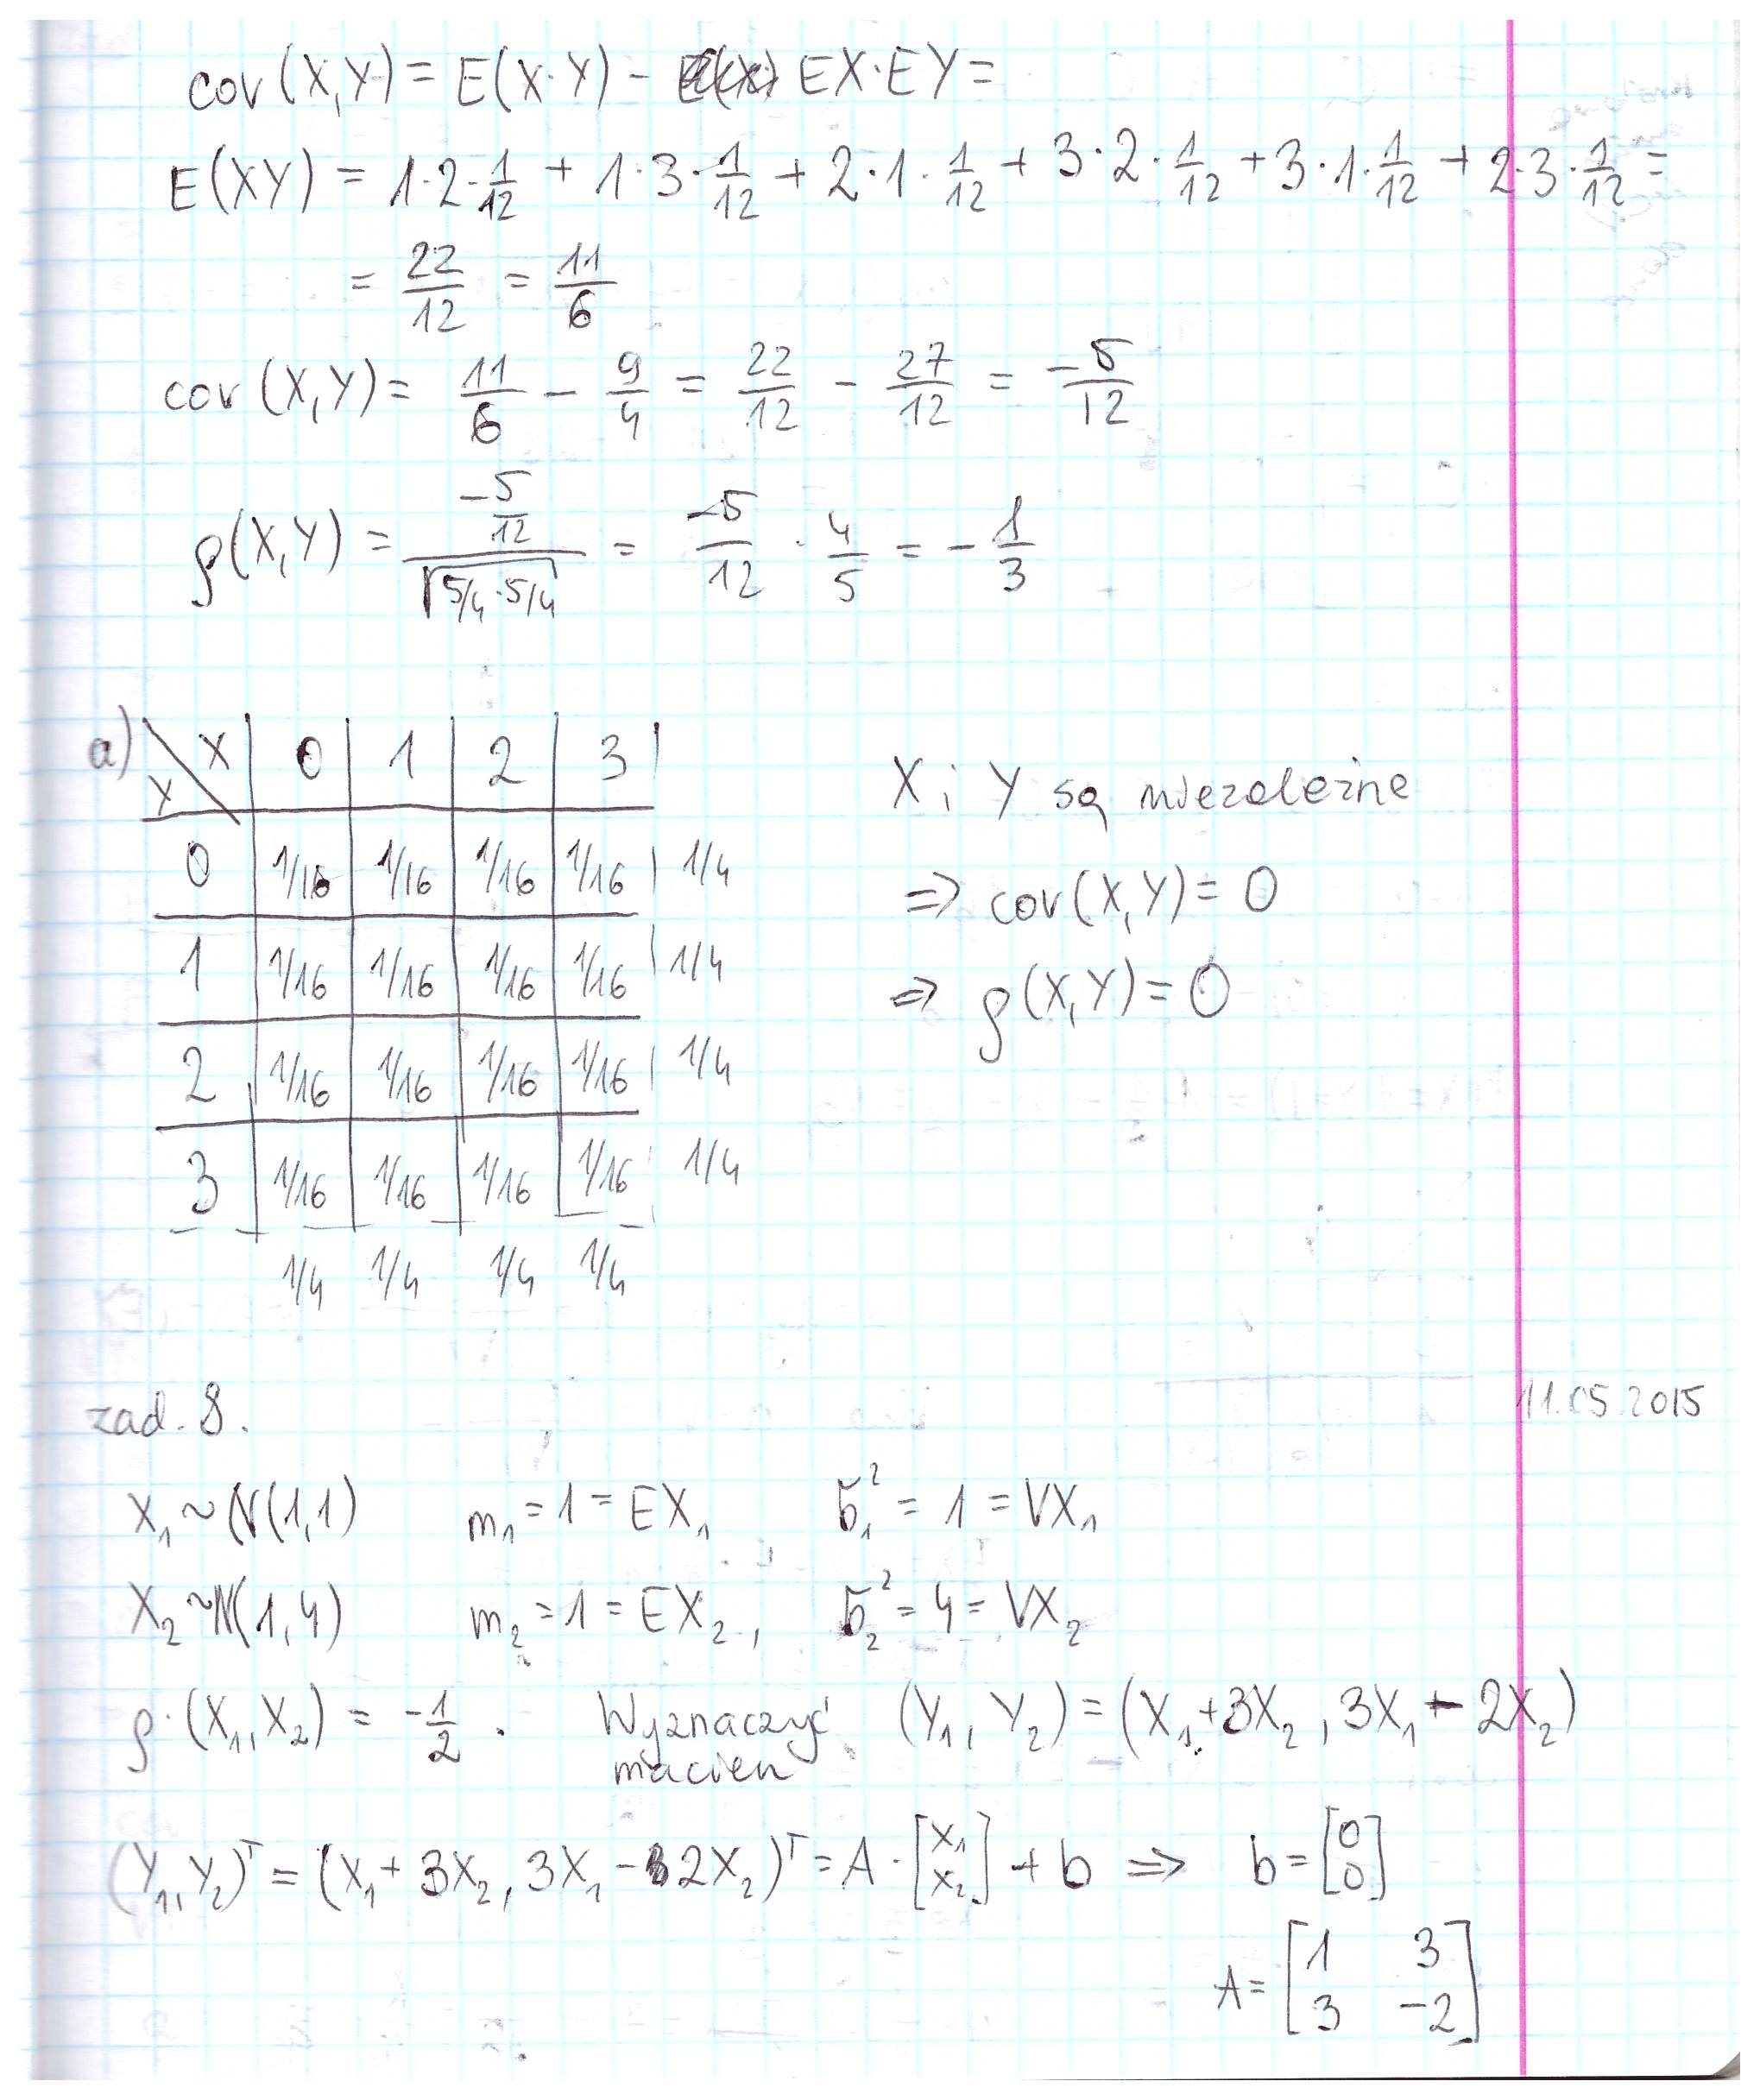 cov(X,Y) = E(X·Y) - EX·EY =
E(XY) = 1·2·1/12 + 1·3·1/12 + 2·1·1/12 + 3·2·1/12 + 3·1·1/12 + 2·3·1/12 =
= 22/12 = 11/6
cov(X,Y) = 11/6 - 9/4 = 22/12 - 27/12 = -5/12
ρ(X,Y) = (-5/12)/√(5/4·5/4) = -5/12 · 4/5 = -1/3
a) Y\X 0 1 2 3
0 1/16 1/16 1/16 1/16 1/4
1 1/16 1/16 1/16 1/16 1/4
2 1/16 1/16 1/16 1/16 1/4
3 1/16 1/16 1/16 1/16 1/4
1/4 1/4 1/4 1/4
X i Y są niezależne
⇒ cov(X,Y) = 0
⇒ ρ(X,Y) = 0
11.05.2015
zad. 8.
X₁ ~ N(1,1) m₁ = 1 = EX₁ σ₁² = 1 = VX₁
X₂ ~ N(1,4) m₂ = 1 = EX₂, σ₂² = 4 = VX₂
ρ(X₁,X₂) = -1/2 . Wyznaczyć macierz (Y₁, Y₂) = (X₁+3X₂, 3X₁-2X₂)
(Y₁,Y₂)ᵀ = (X₁+3X₂, 3X₁-2X₂)ᵀ = A·[X₁ X₂] + b ⇒ b = [0 0]
A = [1 3
3 -2]